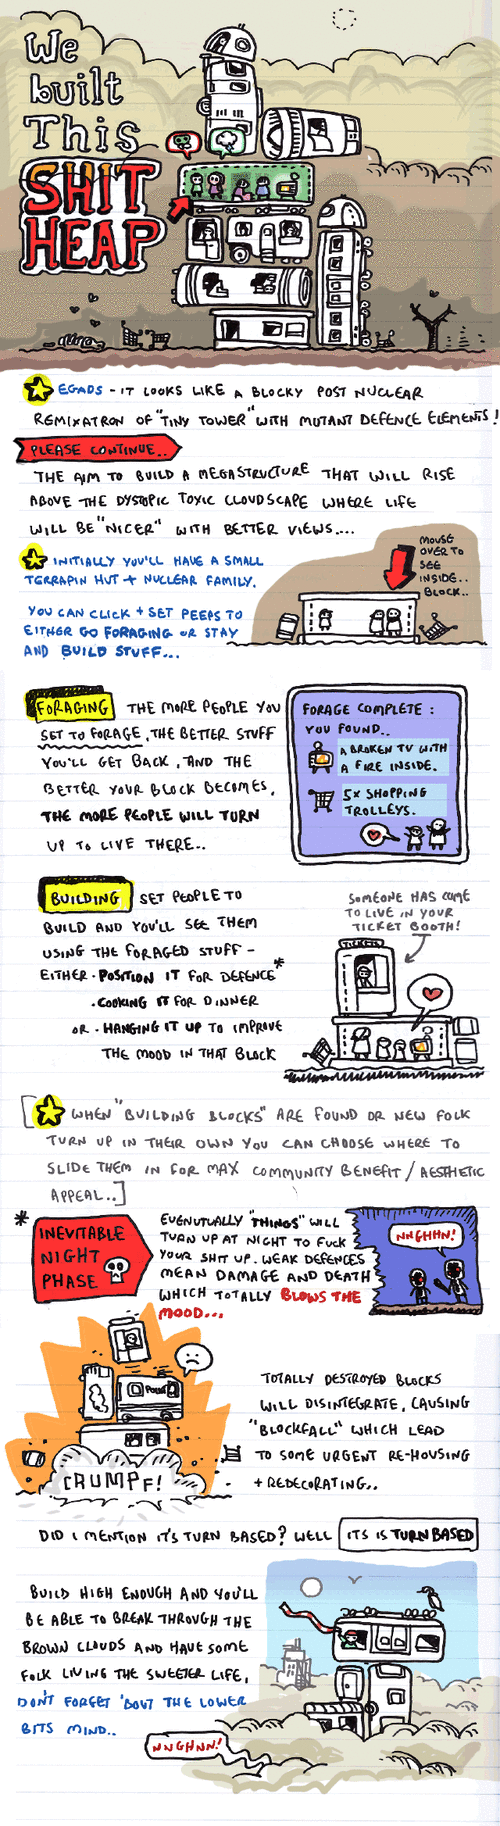 We
built
This
SHIT
HEAP
EGADS - IT LOOKS LIKE A BLOCKY POST NUCLEAR
REMIXATRON OF "TINY TOWER" WITH MUTANT DEFENCE ELEMENTS!
PLEASE CONTINUE..
THE AIM TO BUILD A MEGASTRUCTURE THAT WILL RISE
ABOVE THE DYSTOPIC TOXIC CLOUDSCAPE WHERE LIFE
WILL BE "NICER" WITH BETTER VIEWS....
INITIALLY YOU'LL HAVE A SMALL
TERRAPIN HUT + NUCLEAR FAMILY.
YOU CAN CLICK + SET PEEPS TO
EITHER GO FORAGING OR STAY
AND BUILD STUFF...
MOUSE
OVER TO
SEE
INSIDE..
BLOCK..
FORAGING THE MORE PEOPLE YOU
SET TO FORAGE, THE BETTER STUFF
YOU'LL GET BACK, AND THE
BETTER YOUR BLOCK BECOMES,
THE MORE PEOPLE WILL TURN
UP TO LIVE THERE..
FORAGE COMPLETE :
YOU FOUND..
A BROKEN TV WITH
A FIRE INSIDE.
5X SHOPPING
TROLLEYS.
BUILDING SET PEOPLE TO
BUILD AND YOU'LL SEE THEM
USING THE FORAGED STUFF -
EITHER · POSITION IT FOR DEFENCE*
· COOKING IT FOR DINNER
OR · HANGING IT UP TO IMPROVE
THE MOOD IN THAT BLOCK
SOMEONE HAS COME
TO LIVE IN YOUR
TICKET BOOTH!
TICKETS
[WHEN "BUILDING BLOCKS" ARE FOUND OR NEW FOLK
TURN UP IN THEIR OWN YOU CAN CHOOSE WHERE TO
SLIDE THEM IN FOR MAX COMMUNITY BENEFIT / AESTHETIC
APPEAL..]
* INEVITABLE
NIGHT
PHASE
EVENUTUALLY "THINGS" WILL
TURN UP AT NIGHT TO FUCK
YOUR SHIT UP. WEAK DEFENCES
MEAN DAMAGE AND DEATH
WHICH TOTALLY BLOWS THE
MOOD...
NNGHHN!
POLICE
CRUMPF!
TOTALLY DESTROYED BLOCKS
WILL DISINTEGRATE, CAUSING
"BLOCKFALL" WHICH LEAD
TO SOME URGENT RE-HOUSING
+ REDECORATING..
DID I MENTION IT'S TURN BASED? WELL ITS IS TURN BASED
BUILD HIGH ENOUGH AND YOU'LL
BE ABLE TO BREAK THROUGH THE
BROWN CLOUDS AND HAVE SOME
FOLK LIVING THE SWEETER LIFE,
DON'T FORGET 'BOUT THE LOWER
BITS MIND..
NNGHNN!